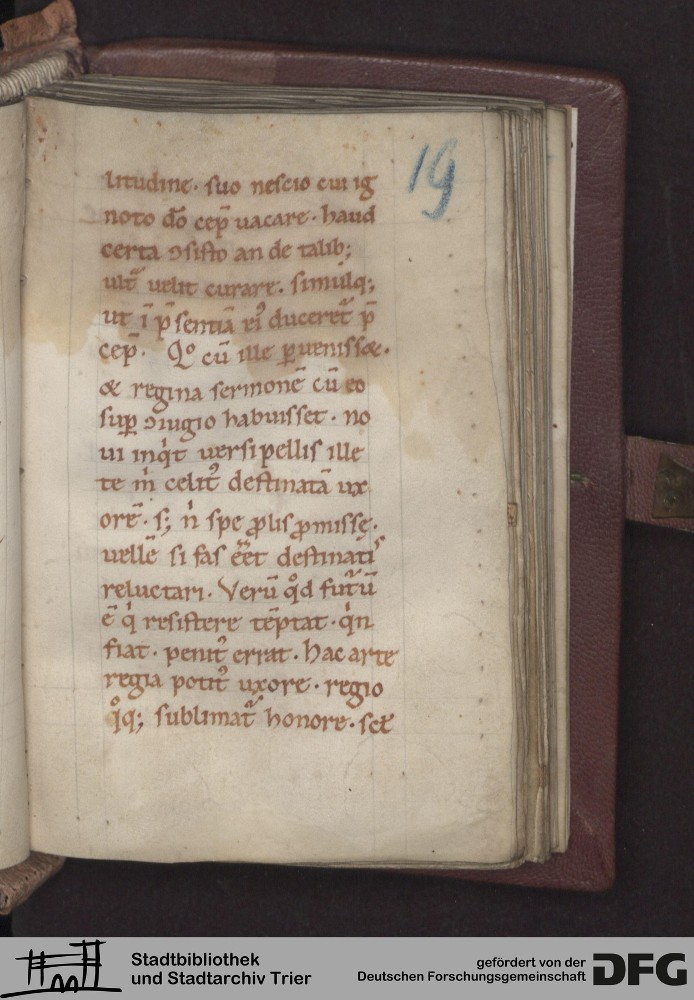 19
litudine. suo nescio cui ig
noto dō cep̄ uacare. haud
certa ɔsisto an de talib;
ult̄ uelit curare. simulq;
ut ī p̄sentiā ei᾽ ducereť p̄
cep̄. Qͦ cū ille ꝑuenisset.
& regina sermonē cū eo
suꝑ ɔiugio habuisset. no
ui inqͥt uersipellis ille
te m̄ celiť destinatā ux
orē. s; n̄ spe ꝓlis ꝓmissę.
uellē si fas eēt destinatis
reluctari. Verū qͦd futurū
ē qͥ resistere tēptat. qͥn
fiat. peniť errat. Hac arte
regia potiť uxore. regio
qͦq; sublimať honore. scet
Stadtbibliothek
und Stadtarchiv Trier
gefördert von der
Deutschen Forschungsgemeinschaft
DFG